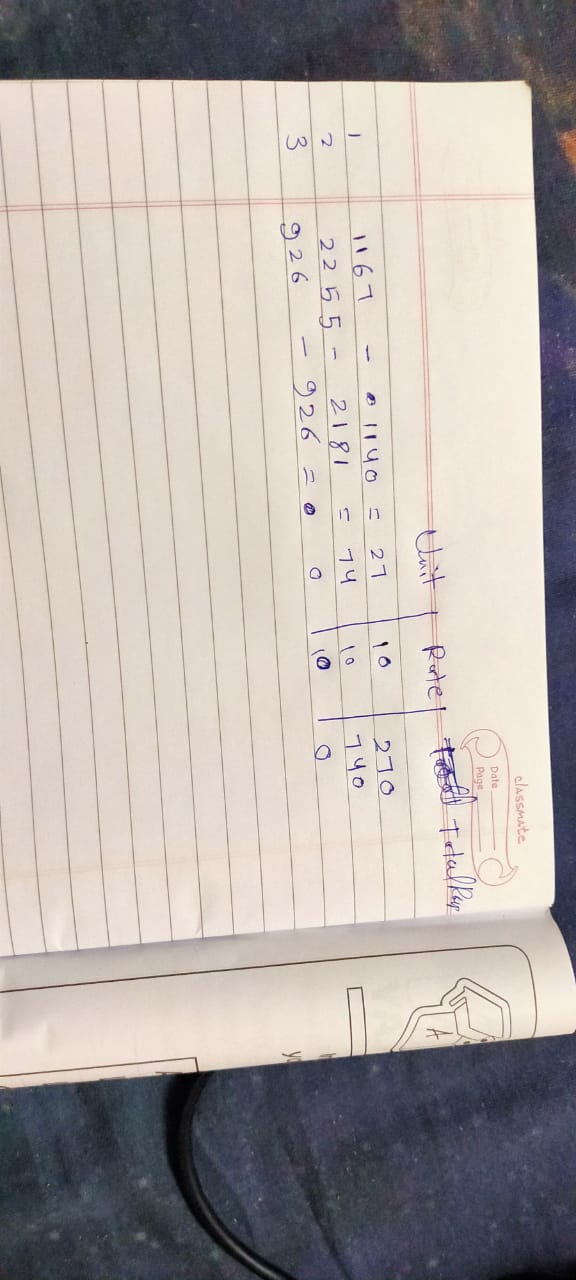 classmate
Date
Page
Unit | Rate | Total Rup
1 1167 - 1140 = 27 | 10 | 270
2 2255 - 2181 = 74 | 10 | 740
3 926 - 926 = 0 | 10 | 0
A